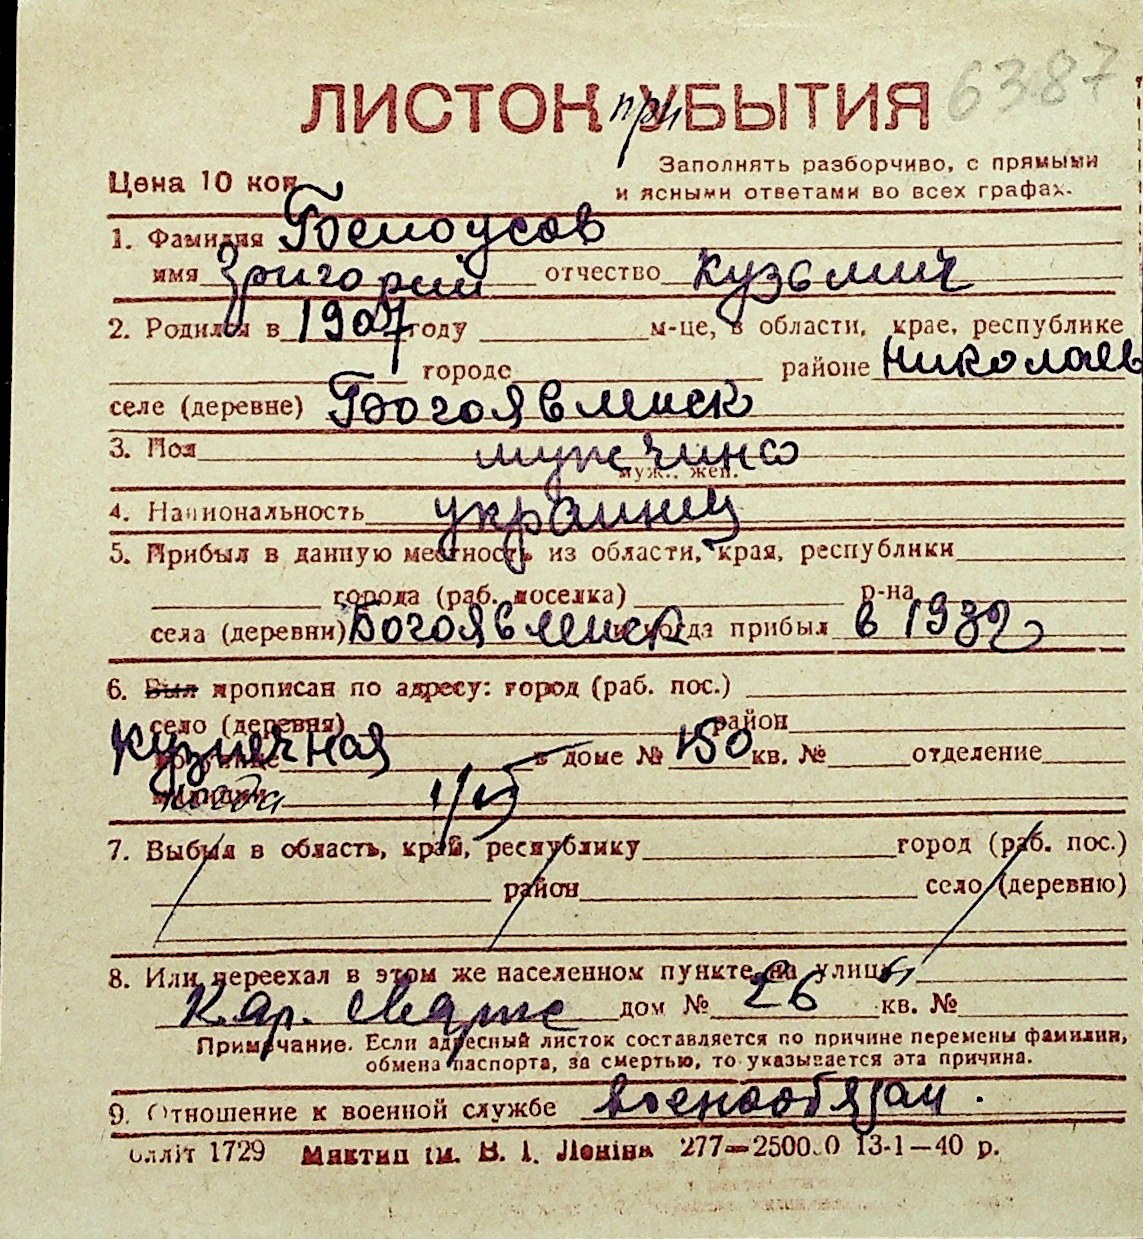 6387
ЛИСТОК при УБЫТИЯ
Заполнять разборчиво, с прямыми
Цена 10 коп.
и ясными ответами во всех графах.
1. Фамилия Белоусов
имя Григорий отчество Кузьмич
2. Родился в 1907 году м-це, в области, крае, республике
городе районе Николаев
селе (деревне) Богоявленск
3. Пол мужчина
муж., жен.
4. Национальность украинец
5. Прибыл в данную местность из области, края, республики
города (раб. поселка) р-на
села (деревни) Богоявленск и когда прибыл в 1932
6. Был прописан по адресу: город (раб. пос.)
село (деревня) район
Кузнечная в доме № 150 кв. № отделение
милиции
7. Выбыл в область, край, республику город (раб. пос.)
район село (деревню)
8. Или переехал в этом же населенном пункте на улицу
Кар. Маркс дом № 26 кв. №
Примечание. Если адресный листок составляется по причине перемены фамилии,
обмена паспорта, за смертью, то указывается эта причина.
9. Отношение к военной службе военнообязан.
1729 Миктип ім. В. І. Леніна 277—25000 13-1—40 р.